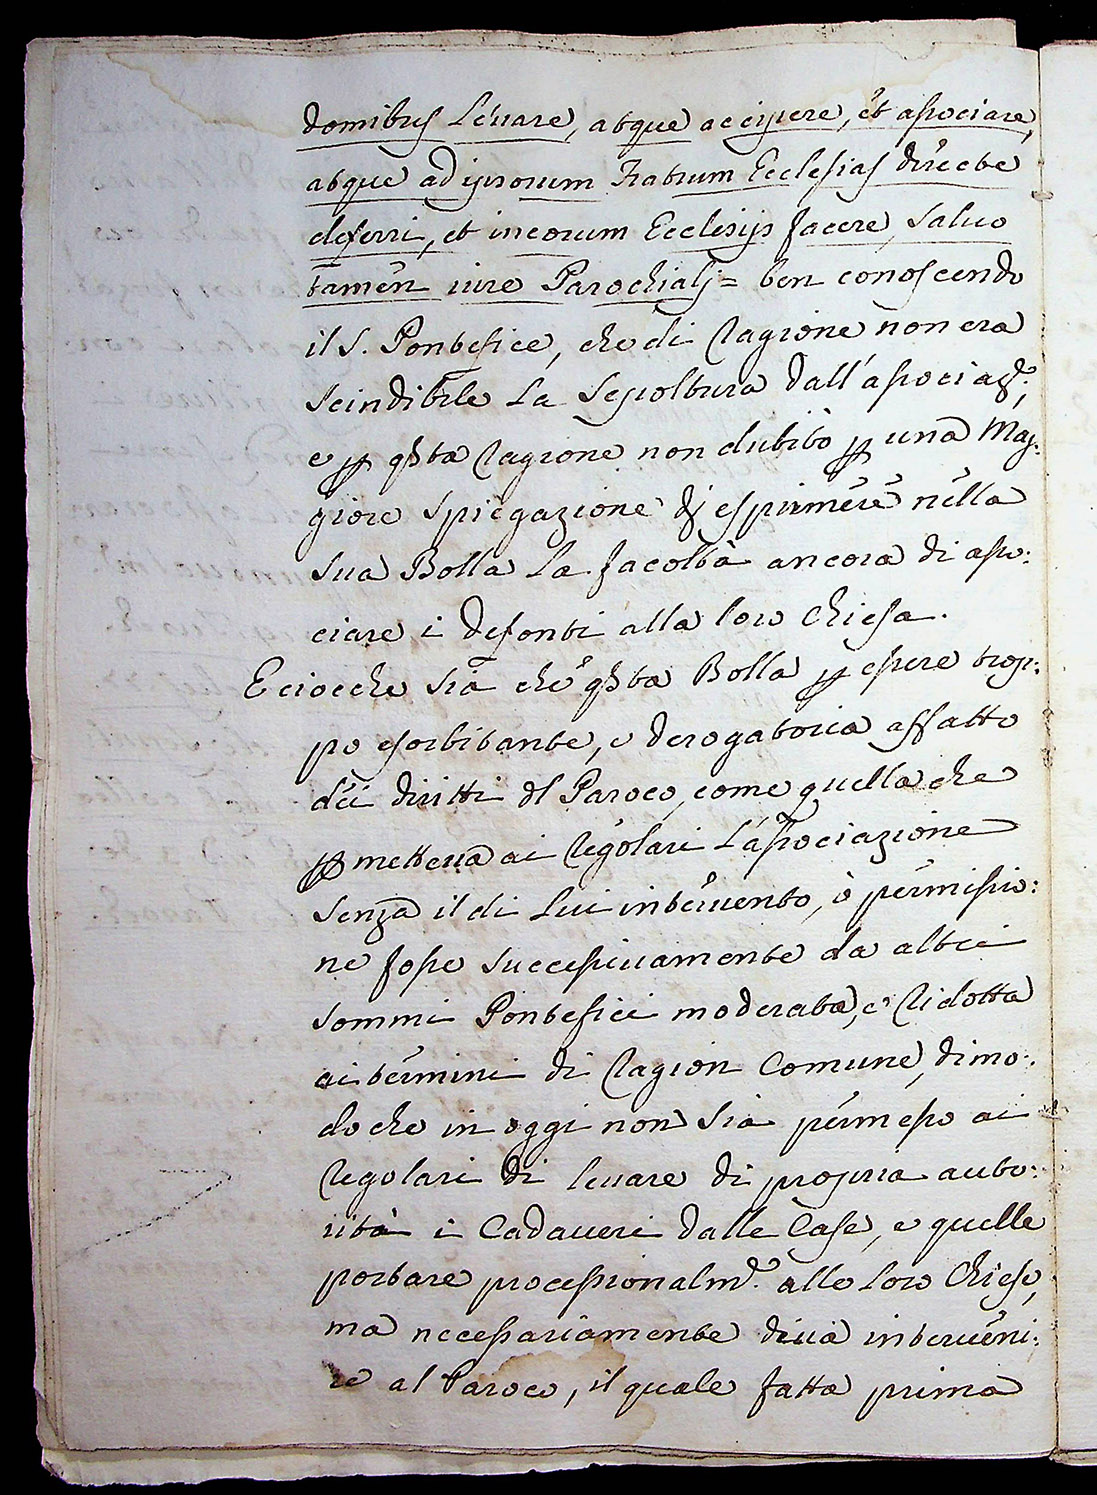 domibus Leuare, atque accipere, et associare,
atque ad ipsorum Fratrum Ecclesias directe
deferri, et in eorum Ecclesijs facere, saluo
tamen iure Parochiali = ben conoscendo
il S. Pontefice, che di Ragione non era
scindibile La Sepoltura dall'associaz.e;
e p qsta Ragione non dubitò p una Mag:
giore spiegazione di esprimere nella
sua Bolla La facoltà ancora di asso:
ciare i defonti alla loro Chiesa.
E ciocche sia che qsta Bolla p essere trop:
po esorbitante, e derogatoria affatto
dei diritti dl Paroco, come quella che
pmetteua ai Regolari L'associazione
senza il di Lui interuento, ò permissio:
ne fosse successiuamente da altri
sommi Pontefici moderata, e Ridotta
ai termini di Ragion Comune, dimo:
do che in oggi non sia permesso ai
Regolari di leuare di propria auto:
rità i Cadaueri dalle Case, e quelle
portare processionalm.e alle loro Chiese,
ma necessariamente interueni:
re al Paroco, il quale fatta prima